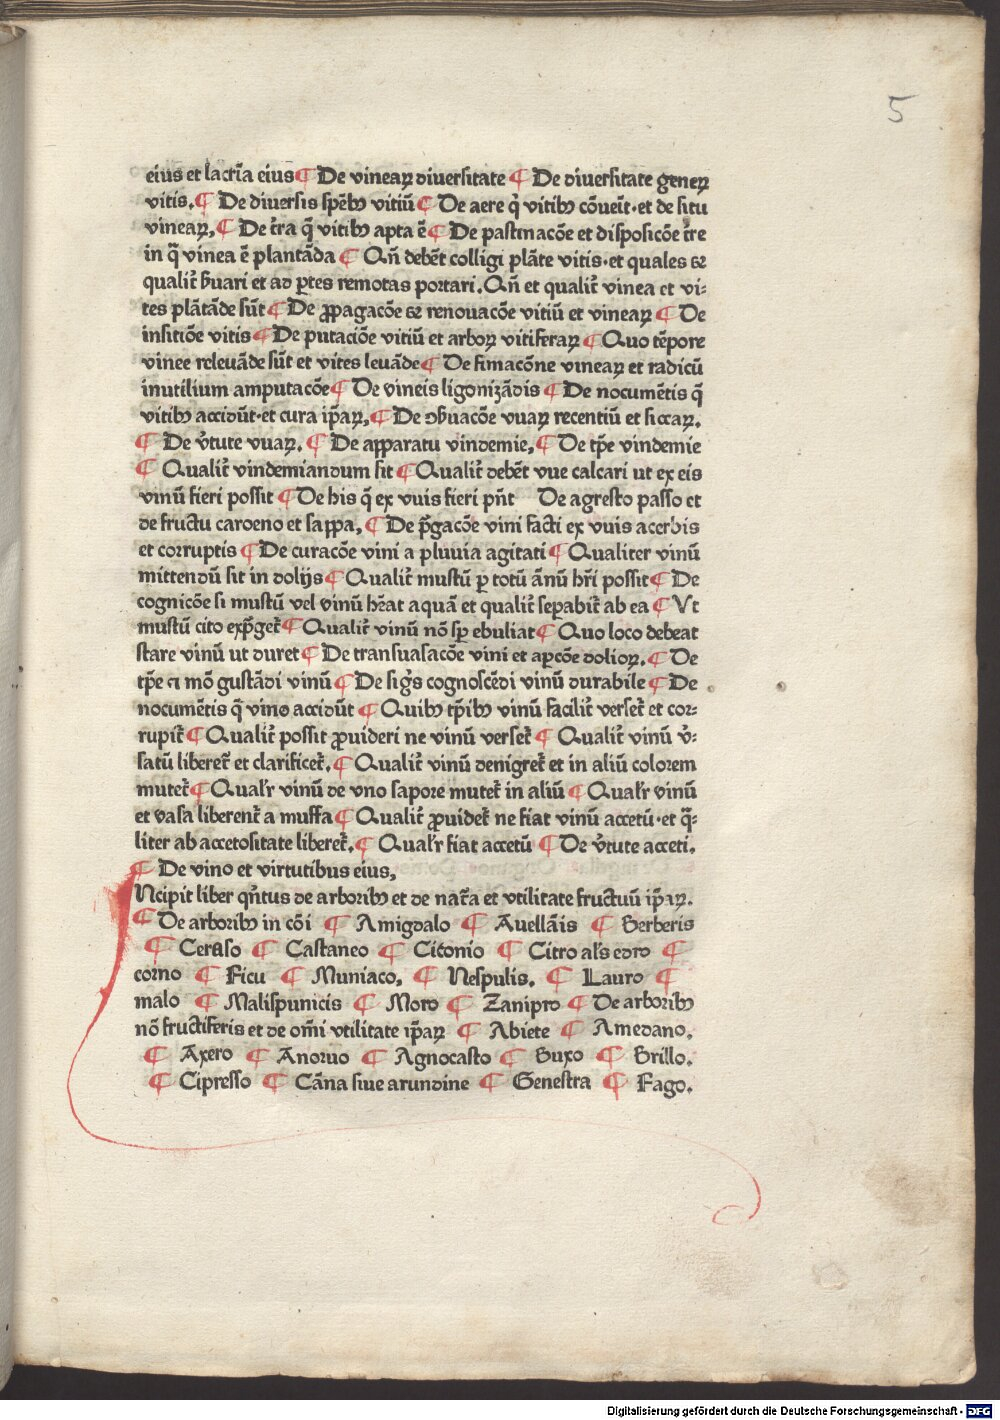 5
eius et lactr̃a eius ¶ De vinearꝝ diuersitate ¶ De diuersitate generꝝ
vitis. ¶ De diuersis spẽbꝰ vitiũ ¶ De aere q̇ vitibꝰ cõueñt·et de situ
vinearꝝ, ¶ De t̃ra q̃ vitibꝰ apta ẽ ¶ De pastinacõe et disposicõe t̃re
in q̃ vinea ẽ plantãda ¶ Qñ debẽt colligi plãte vitis·et quales ⁊
qualit̃ ẜuari et ad ꝑtes remotas portari. Qñ et qualit̃ vinea et vi⸗
tes plãtãde sũt ¶ De ꝓpagacõe ⁊ renouacõe vitiũ et vinearꝝ ¶ De
insitiõe vitis ¶ De putaciõe vitiũ et arborꝝ vitiferarꝝ ¶ Quo tẽpore
vinee releuãde sũt et vites leuãde ¶ De fimacõne vinearꝝ et radicũ
inutilium amputacõe ¶ De vineis ligonizãdis ¶ De nocumẽtis q̃
vitibꝰ accidũt·et cura ip̃arꝝ, ¶ De ꝯẜuacõe vuarꝝ recentiũ et siccarꝝ.
¶ De v̓tute vuarꝝ. ¶ De apparatu vindemie, ¶ De tp̃e vindemie
¶ Qualit̃ vindemiandum sit ¶ Qualit̃ debẽt vue calcari ut ex eis
vinũ fieri possit ¶ De his q̃ ex vuis fieri pñt De agresto passo et
de fructu caroeno et sappa, ¶ De p̃gacõe vini facti ex vuis acerbis
et corruptis ¶ De curacõe vini a pluuia agitati ¶ Qualiter vinũ
mittendũ sit in dolijs ¶ Qualit̃ mustũ ꝑ totũ ãnũ hr̃i possit ¶ De
cognicõe si mustũ vel vinũ hẽat aquã et qualit̃ seꝑabit̃ ab ea ¶ Vt
mustũ cito exp̃get̃ ¶ Qualit̃ vinũ nõ sꝑ ebuliat ¶ Quo loco debeat
stare vinũ ut duret ¶ De transuasacõe vini et aꝑcõe doliorꝝ. ¶ De
tp̃e ⁊ mõ gustãdi vinũ ¶ De sig̓s cognoscẽdi vinũ durabile ¶ De
nocumẽtis q̃ vino accidũt ¶ Quibꝰ tp̃ibꝰ vinũ facilit̃ verset̃ et cor⸗
rupit̃ ¶ Qualit̃ possit ꝓuideri ne vinũ verset̃ ¶ Qualit̃ vinũ v̓⸗
satũ liberet̃ et clarificet̃. ¶ Qualit̃ vinũ denigret̃ et in aliũ colorem
mutet̃ ¶ Qual'r vinũ de vno sapore mutet̃ in aliũ ¶ Qual'r vinũ
et vasa liberent̃ a muffa ¶ Qualit̃ ꝓuidet̃ ne fiat vinũ accetũ·et q̃⸗
liter ab accetositate liberet̃. ¶ Qual'r fiat accetũ ¶ De v̓tute acceti.
¶ De vino et virtutibus eius,
Ncipit liber qñtus de arboribꝰ et de nat̃a et vtilitate fructuũ ip̃arꝝ.
¶ De arboribꝰ in cõi ¶ Amigdalo ¶ Auellãis ¶ Berberis
¶ Ceraso ¶ Castaneo ¶ Citonio ¶ Citro al's cdro ¶
corno ¶ Ficu ¶ Muniaco, ¶ Nespulis. ¶ Lauro ¶
malo ¶ Malispunicis ¶ Moro ¶ Zanipro ¶ De arboribꝰ
nõ fructiferis et de om̃i vtilitate ip̃arꝝ ¶ Abiete ¶ Amedano,
¶ Axero ¶ Anoruo ¶ Agnocasto ¶ Buxo ¶ Brillo.
¶ Cipresso ¶ Cãna siue arundine ¶ Genestra ¶ Fago.
Digitalisierung gefördert durch die Deutsche Forschungsgemeinschaft - DFG